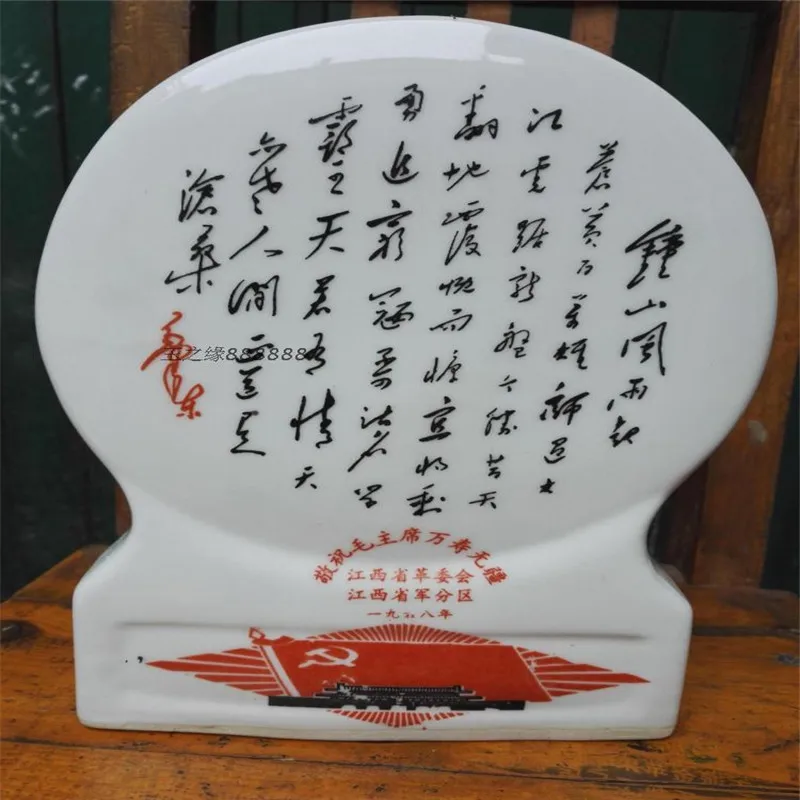 鍾山风雨起
蒼黄百万雄師過大
江虎踞龍盤今胜昔天
翻地覆慨而慷宜将剩
勇追窮寇不可沽名学
霸王天若有情天
亦老人间正道是
滄桑
毛泽东
玉之缘888888
敬祝毛主席万寿无疆
江西省革委会
江西省军分区
一九六八年